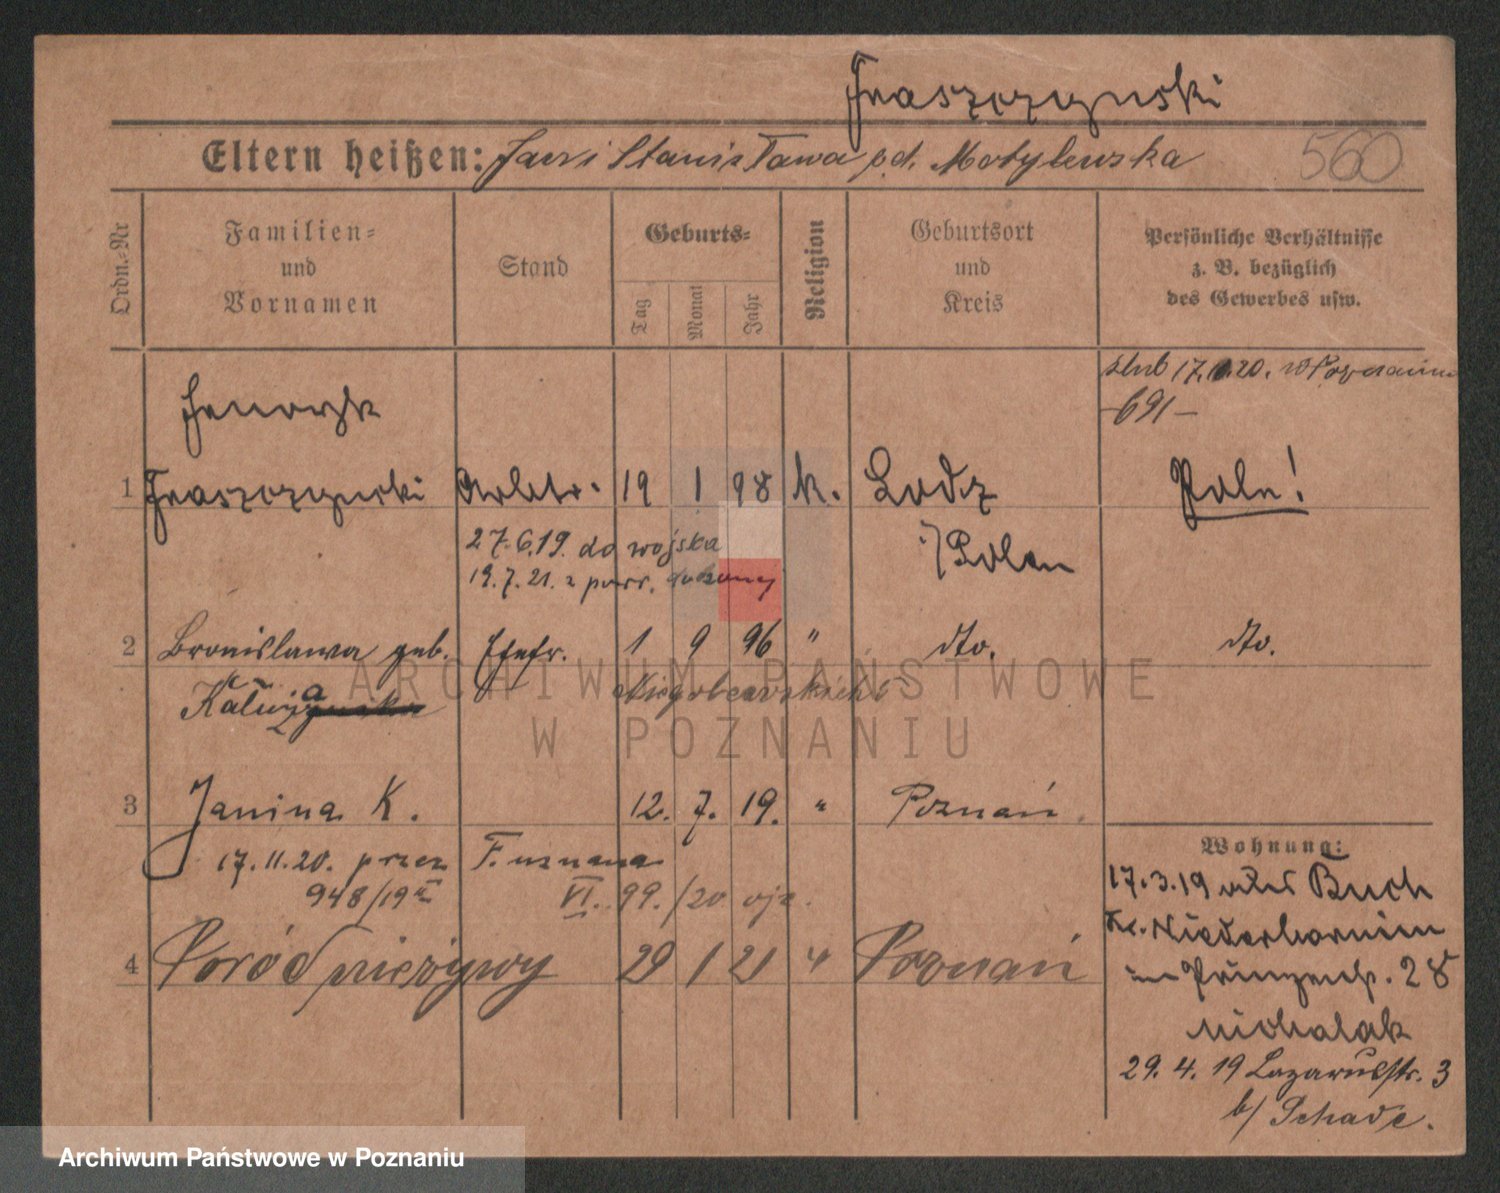 Fraszczynski
Eltern heißen: Jan i Stanisława z d. Motylewska
560
Ordn.-Nr
Familien- und Vornamen
Stand
Geburts-
Tag
Monat
Jahr
Religion
Geburtsort und Kreis
Persönliche Verhältnisse z. B. bezüglich des Gewerbes usw.
ślub 17.11.20. w Poznaniu
-691-
1 Fraszczynski Arbtr. 19 1 98 k. Lodz Pole!
27.6.19. do wojska
i/Polen
19.7.21. z powr.
2 Bronislawa geb. Ehefr. 1 9 96 " dto. dto.
3 Janina K. 12. 7. 19. " Poznań.
17.11.20. przez F. uznana
948/19 VI. 99./20
4 Poród nieżywy 29 1 21 " Poznań
Wohnung:
17.3.19 Buch
Kr. Niederbarnim
28
Michalak
29.4.19 Lazarusstr. 3
b/ Schade.
ARCHIWUM PAŃSTWOWE
W POZNANIU
Archiwum Państwowe w Poznaniu